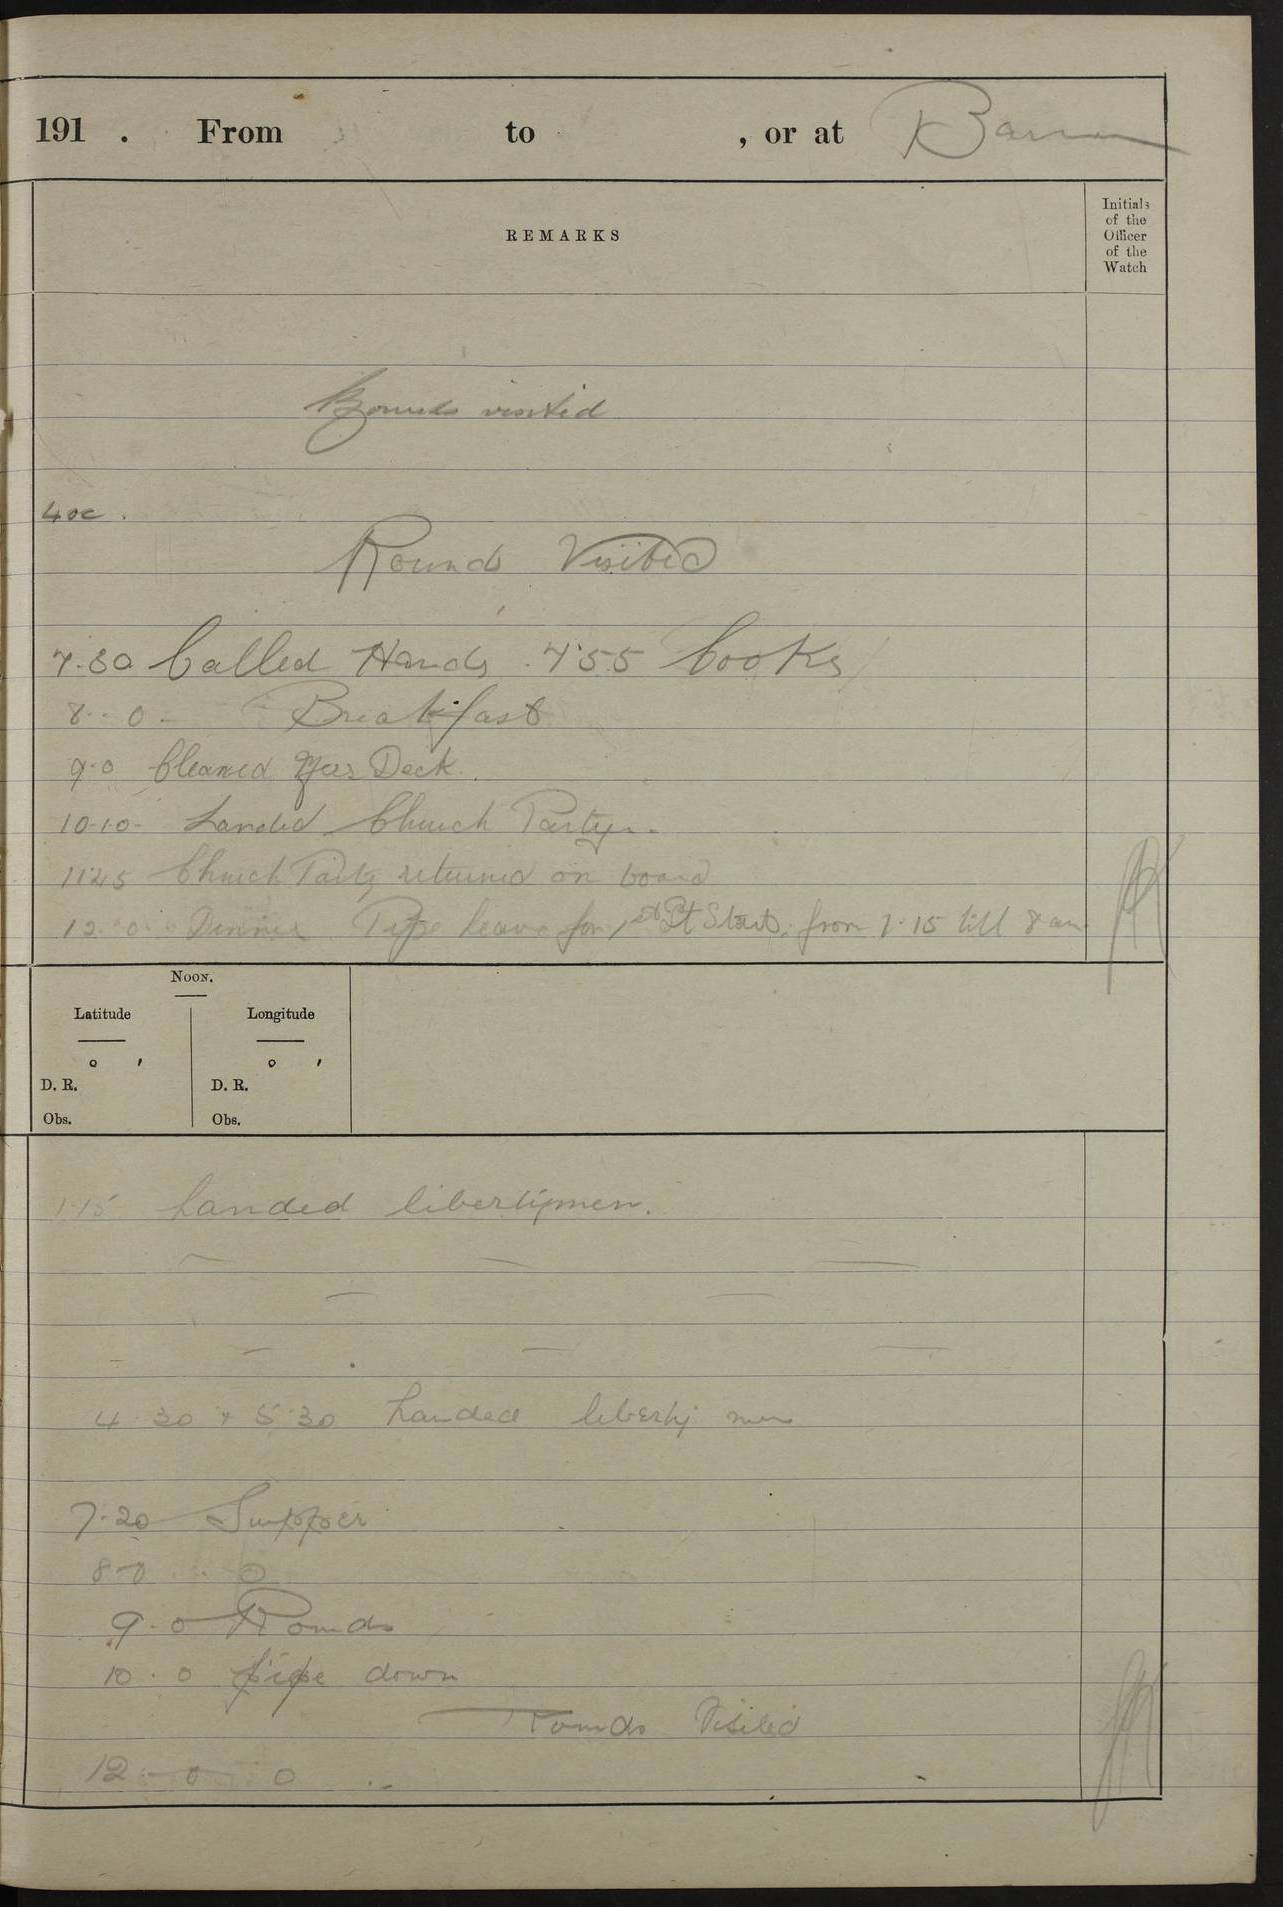 191 . From to , or at Barrow
REMARKS
Initials
of the
Officer
of the
Watch
Rounds visited
4 oc .
Rounds Visited
7.30 Called Hands . 7.55 Cooks
8 - 0 - Breakfast
9.0 Cleaned Mess Deck.
10.10 - Landed Church Party.
11.45 Church Party returned on board
12.0. Dinner Pipe leave for 1st Pt Starb. from 1.15 till 8 am
NOON.
Latitude Longitude
° ′ ° ′
D. R. D. R.
Obs. Obs.
1.15 Landed libertymen.
4.30 & 5.30 Landed liberty men
7.20 Supper
8-0 . 0
9.0 Rounds
10.0 pipe down
Rounds Visited
12 - 0 0